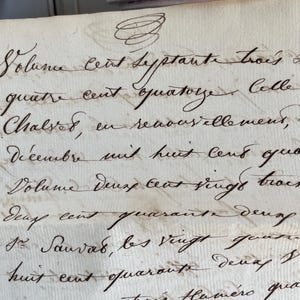 Volume cent septante trois
quatre cent quatorze. Celle
Chalves, en renouvellement,
décembre mil huit cent qua
Volume deux cent vingt trois
deux cent quarante deux
St Sauvas, les vingt quatre
huit cent quarante deux V
numéro qua